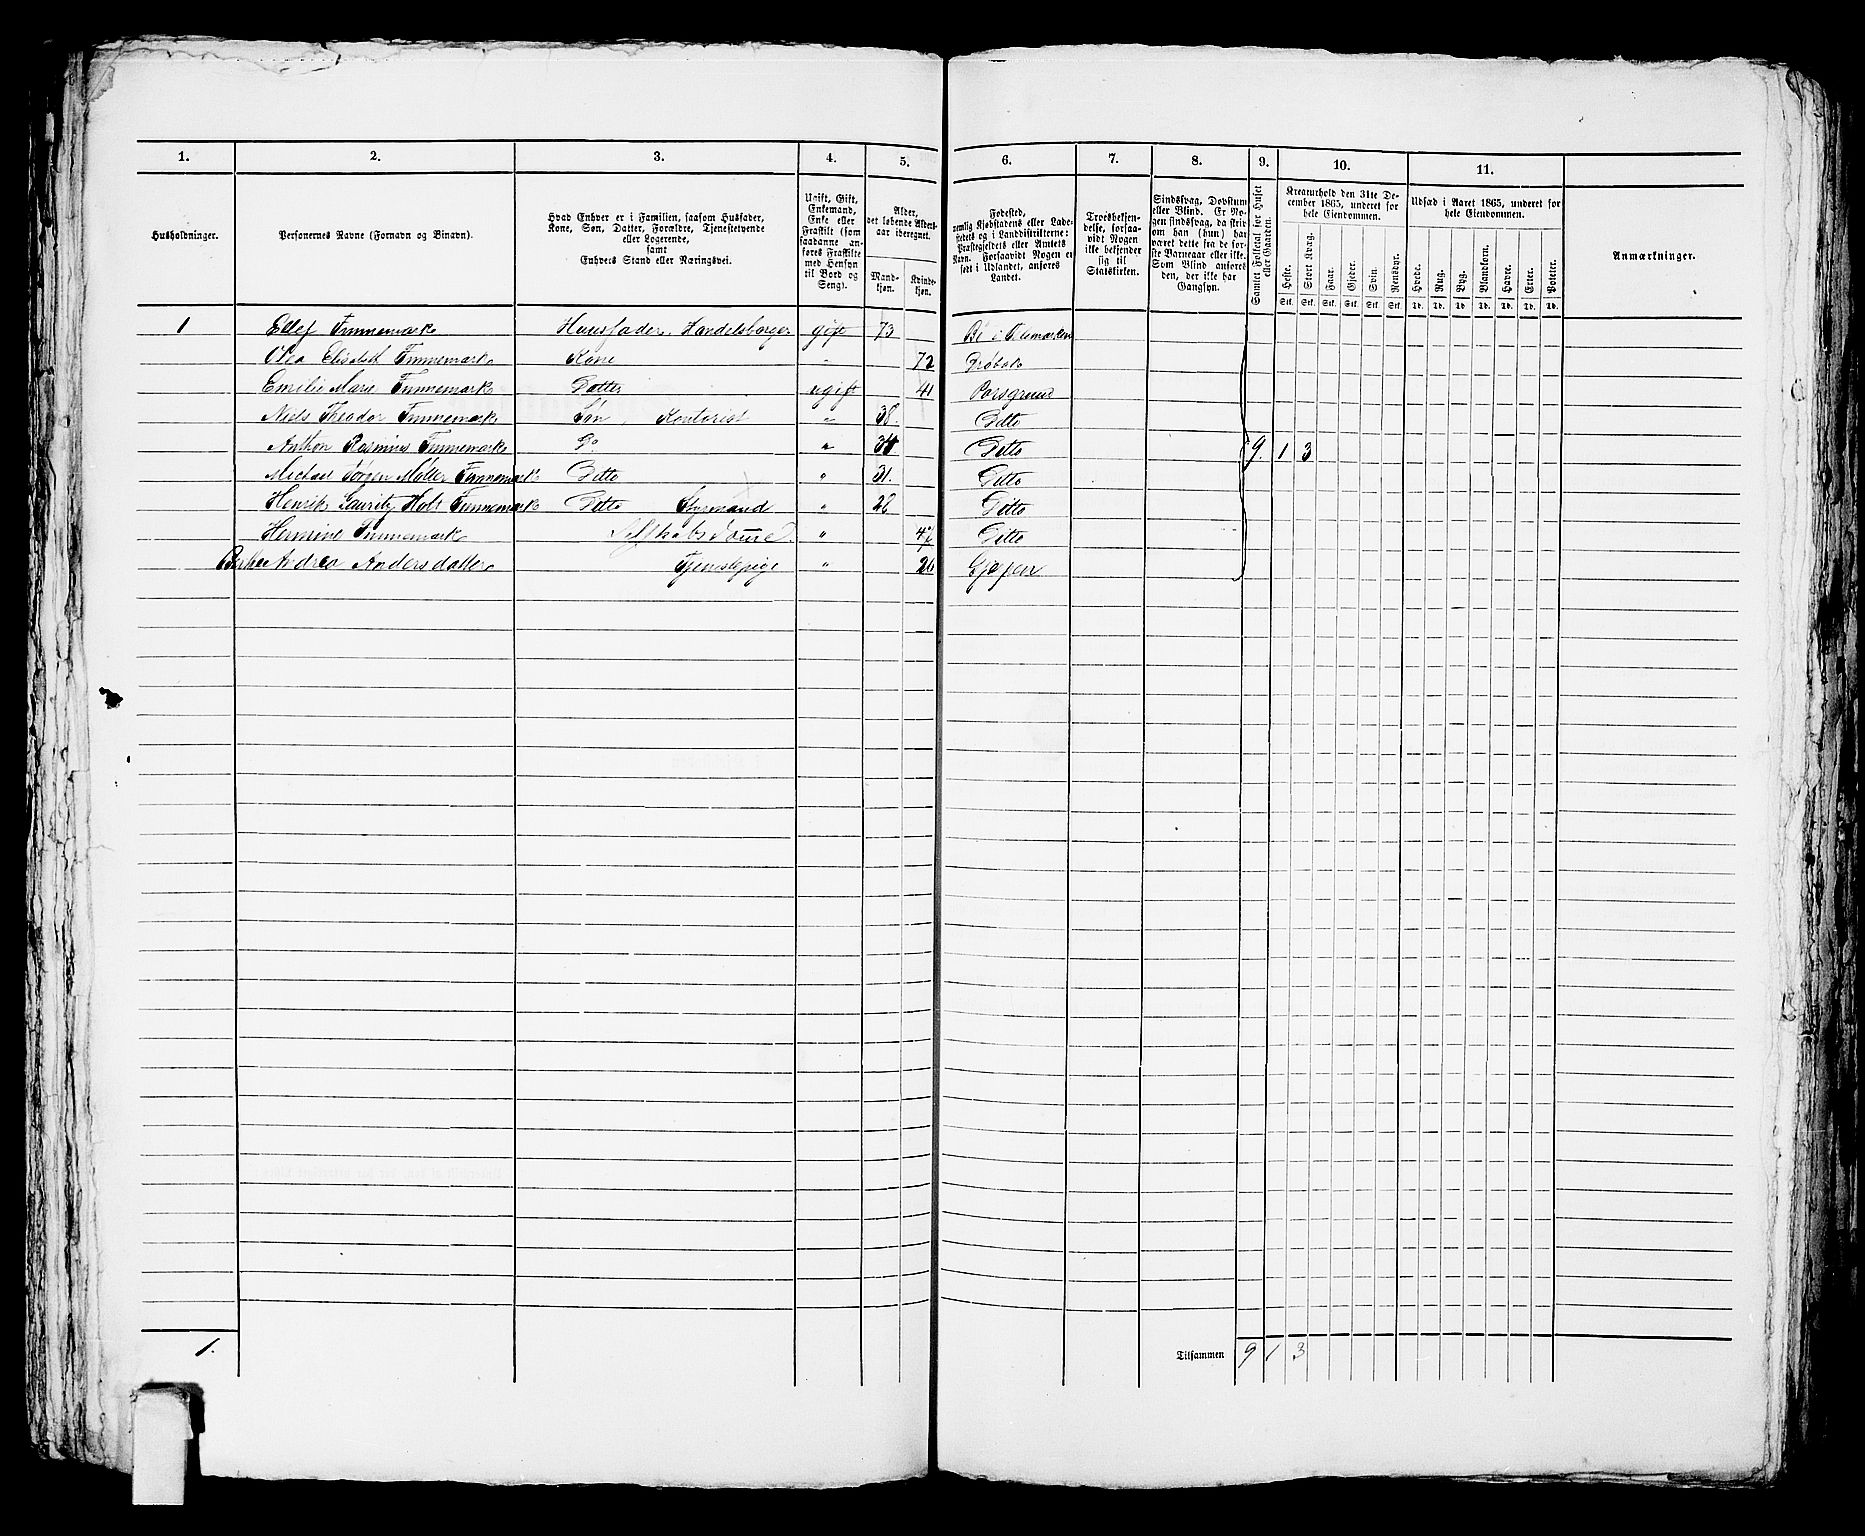 1. 2. 3. 4. 5. 6. 7. 8. 9. 10. 11.
Husholdninger.
Personernes Navne (Fornavn og Binavn).
Hvad Enhver er i Familien, saasom Husfader,
Kone, Søn, Datter, Forældre, Tjenestetyende
eller Logerende,
samt
Enhvers Stand eller Næringsvei.
Ugift, Gift,
Enkemand,
Enke eller
Fraskilt (som
saadanne an-
føres Fraskilte
med Hensyn
til Bord og
Seng).
Alder,
det løbende Alders-
aar iberegnet.
Mand-
kjøn.
Kvinde-
kjøn.
Fødested,
nemlig Kjøbstadens eller Lade-
stedets og i Landdistrikterne:
Præstegjeldets eller Amtets
Navn. Forsaavidt Nogen er
født i Udlandet, anføres
Landet.
Troesbekjen-
delse, forsaa-
vidt Nogen
ikke bekjender
sig til
Statskirken.
Sindssvag, Døvstum
eller Blind. Er No-
gen sindssvag, da skriv
om han (hun) har
været dette fra de før-
ste Barneaar eller ikke.
Som Blind anføres
den, der ikke har
Gangsyn.
Samlet Folketal for Huset
eller Gaarden.
Kreaturhold den 31te De-
cember 1865, underet for
hele Eiendommen.
Heste. Stort Kvæg. Faar. Gjeder. Svin. Rensdyr.
Stk. Stk. Stk. Stk. Stk. Stk.
Udsæd i Aaret 1865, underet for
hele Eiendommen.
Hvede. Rug. Byg. Blandkorn. Havre. Erter. Poteter.
Td. Td. Td. Td. Td. Td. Td.
Anmærkninger.
1 Ellef Tinnemark Huusfader, Handelsborger gift 73 Bø i Telemarken
Olea Elisabet Tinnemark Kone " 72 Drøbak
Emilie Marie Tinnemark Datter ugift 41 Porsgrund
Niels Theodor Tinnemark Søn, Kontorist " 38. Ditto
Anthon Rasmus Tinnemark Do " 34 Ditto 9. 1 3
Michael Jørgen Møller Tinnemark Ditto " 31. Ditto
Henrik Lauritz Holt Tinnemark Ditto Styrmand " 28 Ditto
Hermine Tinnemark Selskabsdame " Ditto
Berthe Andrea Andersdatter Tjenstepige " 26 Gjerpen
1.
Tilsammen 9 1 3